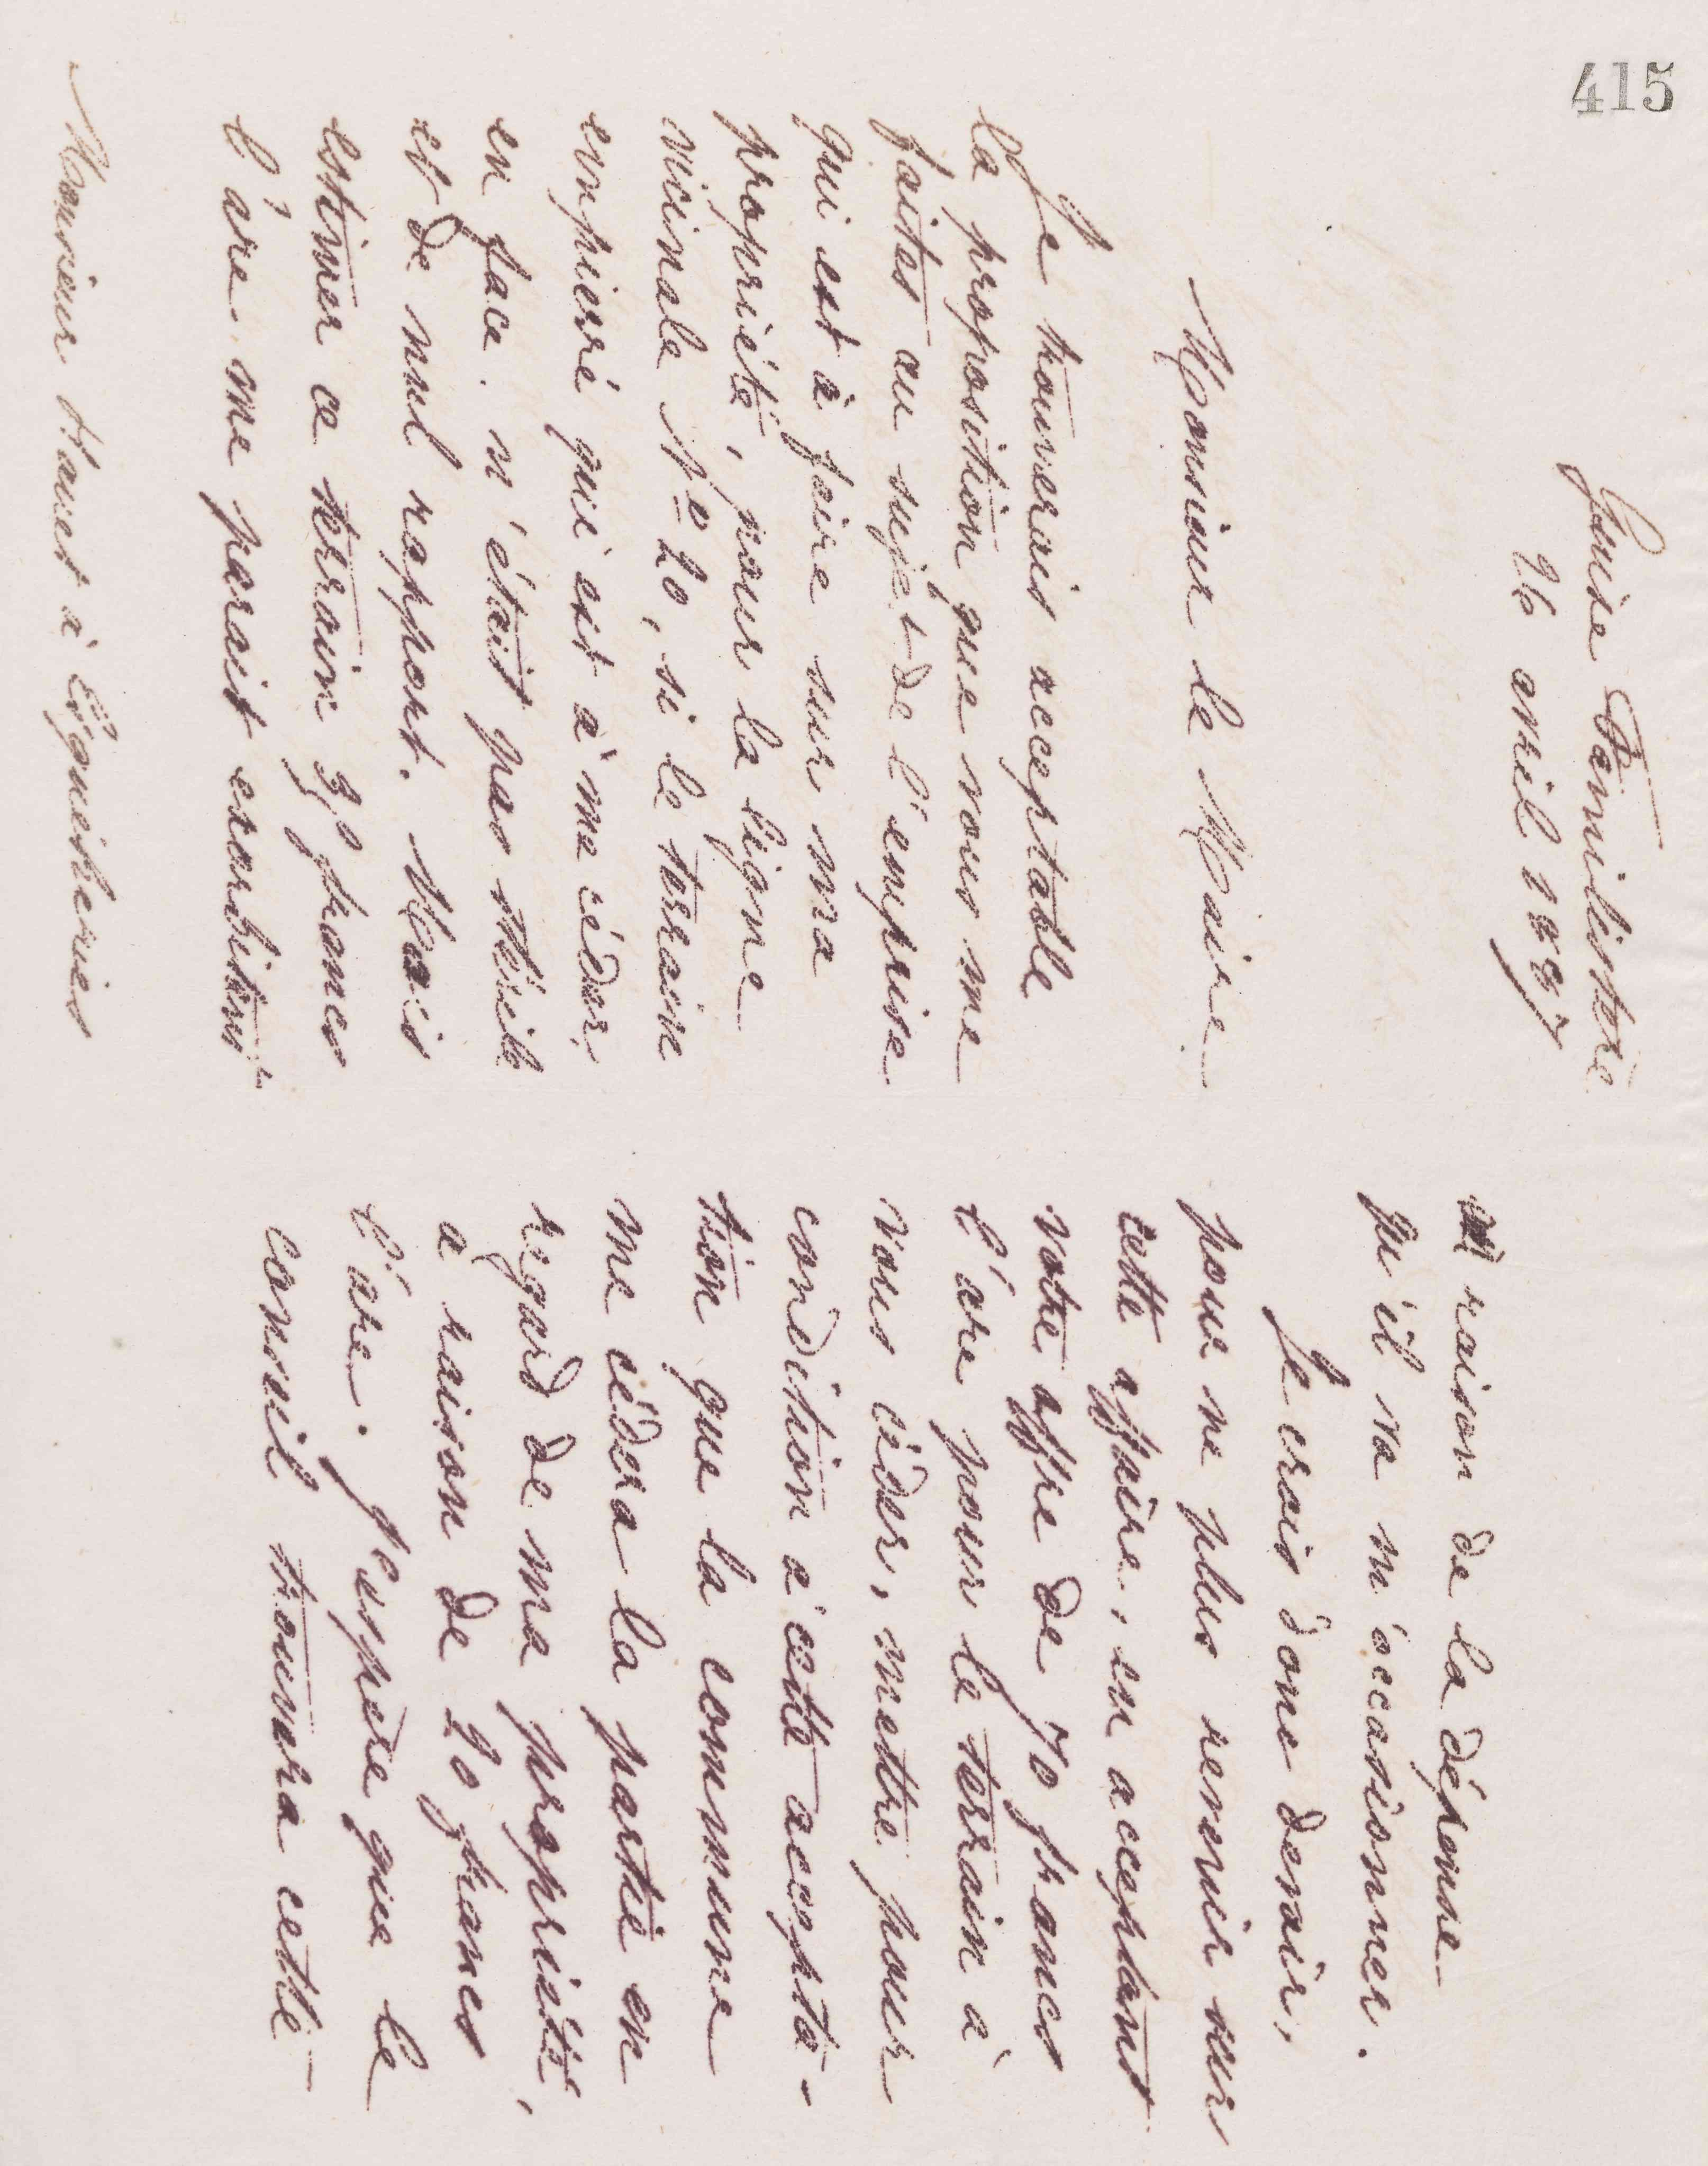 415
Guise Familistère
26 avril 1887
Monsieur le Maire
Je trouverais acceptable
la proposition que vous me
faites au sujet de l'emprise
qui est à faire sur ma
propriété, pour la ligne
vicinale N° 20, si le terrain
empierré qui est à me céder,
en face, n'était pas stérile
et de nul rapport. Mais
estimer ce terrain 35 francs
l'are me parait exorbitant
Monsieur Hanet à Esquéheries
en raison de la dépense
qu'il va m'occasionner.
Je crois donc devoir,
pour ne plus revenir sur
cette affaire, en acceptant
votre offre de 70 francs
l'are pour le terrain à
vous céder, mettre pour
condition à cette accepta-
tion que la commune
me cédera la partie en
regard de ma propriété,
à raison de 20 francs
l'are. J'espère que le
conseil trouvera cette